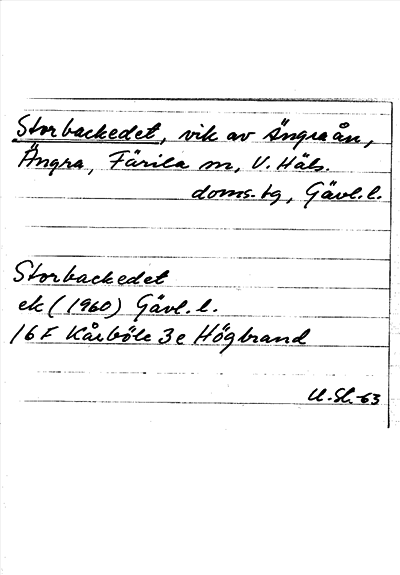 Storbackedet, vik av Ängraån,
Ängra, Färila sn, V. Häls.
doms.bg, Gävl.l.
Storbackedet
ek (1960) Gävl.l.
16F Kårböle 3e Högbrand
U.Sh.-63